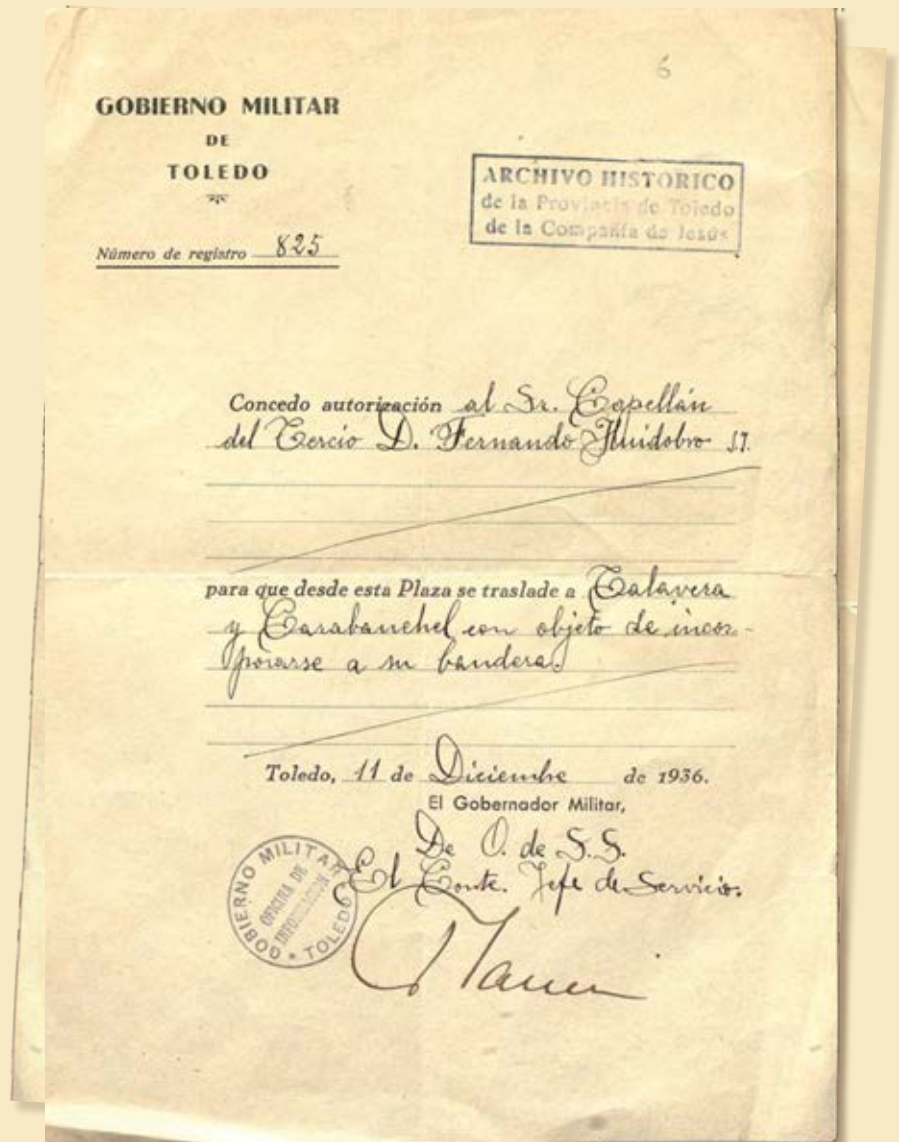 6
GOBIERNO MILITAR
DE
TOLEDO
Número de registro 825
ARCHIVO HISTORICO
de la Provincia de Toledo
de la Compañía de Jesús
Concedo autorización al Sr. Capellán
del Tercio D. Fernando Huidobro S.J.
para que desde esta Plaza se traslade a Talavera
y Carabanchel con objeto de incor-
porarse a su bandera.
Toledo, 11 de Diciembre de 1936.
El Gobernador Militar,
De O. de S.S.
El Comte. Jefe de Servicio.
GOBIERNO MILITAR
TOLEDO
OFICINA DE
INFORMACION